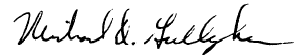 Michael D. Gallagher